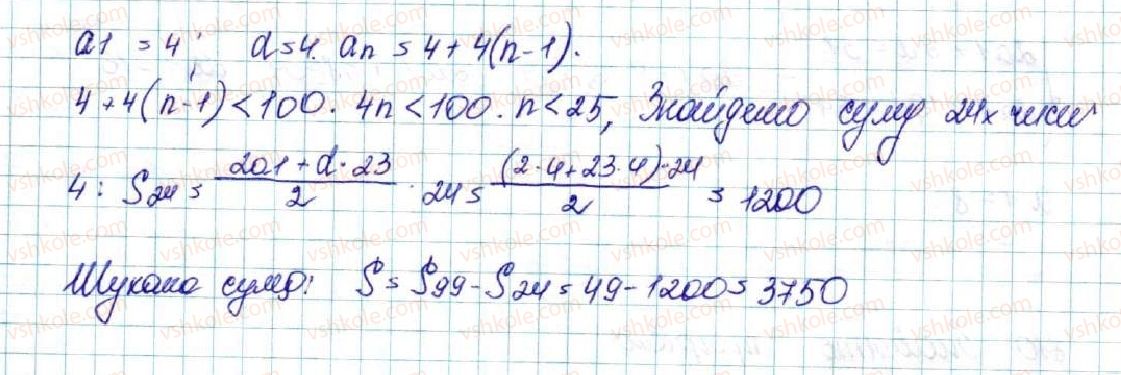 a1 = 4; d = 4. an = 4 + 4(n-1).
4 + 4(n-1) < 100. 4n < 100. n < 25, Знайдемо суму 24х чисел
4: S24 = (2a1 + d·23)/2 · 24 = ((2·4+23·4)·24)/2 = 1200
Шукана сума: S = S99 - S24 = 49 - 1200 = 3750